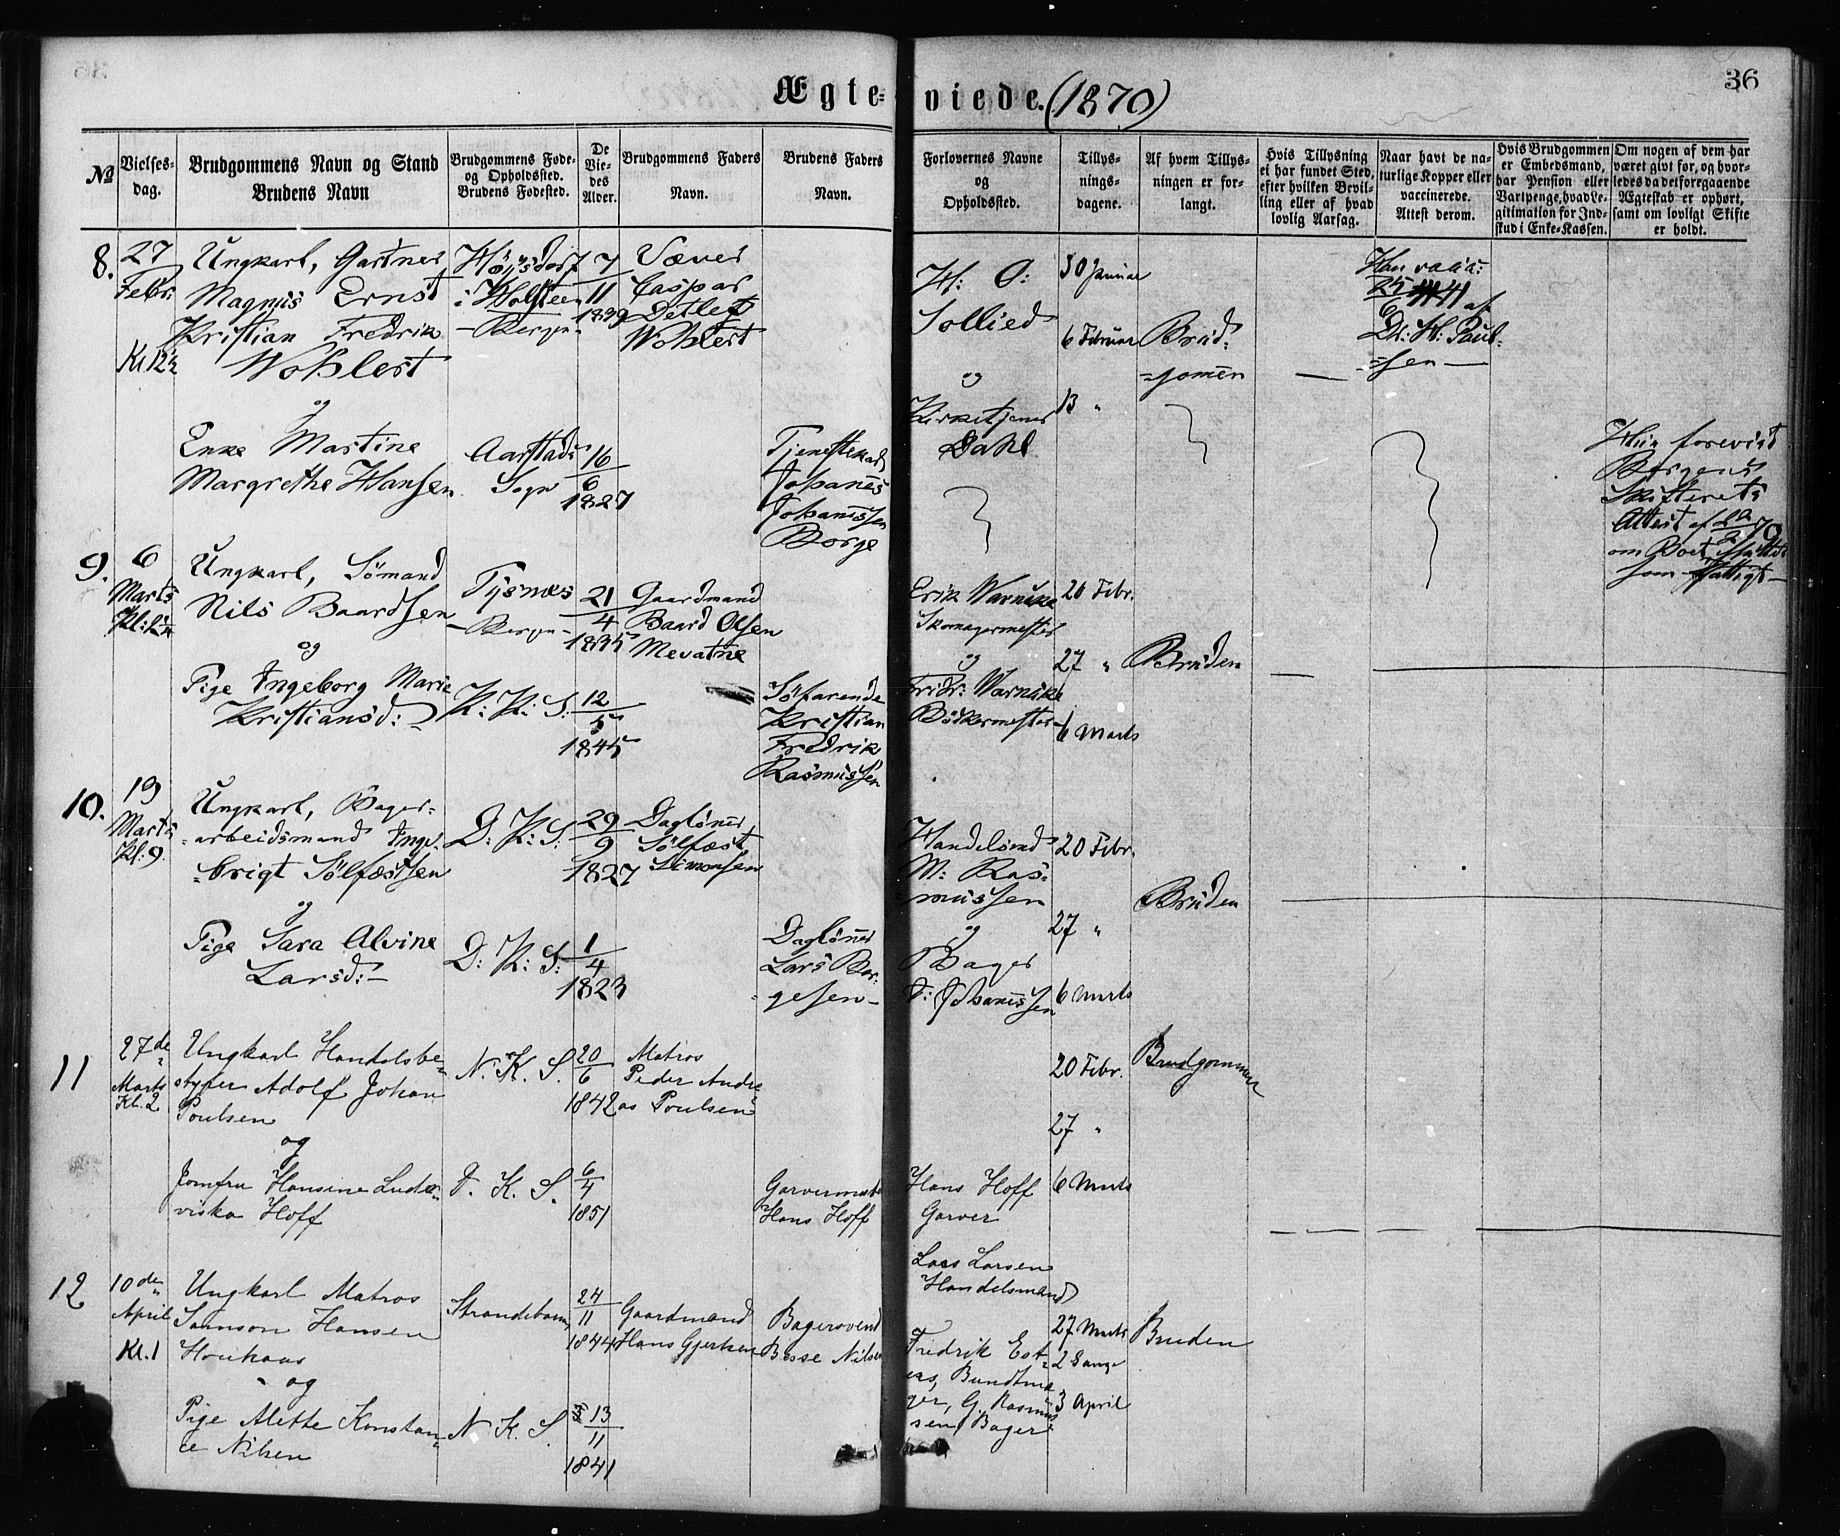 Ægte- viede. (1870)
36
№
Vielses-
dag.
Brudgommens Navn og Stand
Brudens Navn
Brudgommens Føde-
og Opholdssted.
Brudens Fødested.
De
Vie-
des
Alder.
Brudgommens Faders
Navn.
Brudens Faders
Navn.
Forlovernes Navne
og
Opholdssted.
Tillys-
nings-
dagene.
Af hvem Tillys-
ningen er for-
langt.
Hvis Tillysning
ei har fundet Sted,
efter hvilken Bevil-
ling eller af hvad
lovlig Aarsag.
Naar havt de na-
turlige Kopper eller
vaccinerede.
Attest derom.
Hvis Brudgommen
er Embedsmand,
har Pension eller
Vartpenge, hvad Le-
gitimation for Ind-
skud i Enke-Kassen.
Om nogen af dem har
været givt før, og hvor-
ledes da det foregaaende
Ægteskab er ophørt,
samt om lovligt Skifte
er holdt.
8.
27
Febr:
Kl 12½
Ungkarl, Gartner
Magnus Ernst
Kristian Fredrik
Wohlert
og
Enke Martine
Margrethe Hansen
i Holsteen
- Bergen -
Aarstads
Sogn
7
11
1839
16
6
1827
Væver
Caspar
Detlef
Wohlert
Tjenestekarl
Johanes
Johanesen
Borge
H: O:
Sollied
og
Kirketjener
Dahl
30 Januar
6 Februar
13 "
Brud-
=gomen
Han vacci:
25
6 41 af
Dr: H: Paul-
=sen
Hun forevist
Bergens
Skifterets
Attest af
om Boet
som
9.
6
Marts
Kl:
Ungkarl, Sömand
Nils Baardsen
og
Pige Ingeborg Marie
Kristiansd:
Tysnæs
- Bergen -
K: K: S:
21
4
1835
12
5
1845
Gaardmand
Baard Olsen
Mevatne
Söfarende
Kristian
Fredrik
Rasmussen
Erik Warncke
Skomagermester
og
Fridr: Warncke
Bödkermester
20 Febr.
27 "
6 Marts
Bruden
10.
19
Marts
Kl: 9.
Ungkarl, Bager-
=arbeidsmand Inge-
=brigt Sölfæstsen
og
Pige Sara Alvine
Larsd:
D: K: S:
D: K: S:
29
9
1827
1
4
1823
Daglöner
Sölfæst
Simonsen
Daglöner
Lars Bör-
gesen
Handelsmd
M: Ras-
mussen
og
Bager
J: Johanesen
20 Febr.
27 "
6 Marts
Bruden
11
27de
Marts
Kl. 2
Ungkarl Handelsbe-
styrer Adolf Johan
Poulsen
og
Jomfru Hansine Lude-
viska Hoff
N. K. S.
D. K. S.
20
6
1842
6
4
1851
Matros
Peder Andre-
as Poulsen
Garvermester
Hans Hoff
Hans Hoff
Garver
Lars Larsen
Handelsmand
20 Febr.
27 "
6 Marts
Brudgommen
12
10de
April
Kl. 1
Ungkarl Matros
Samson Hansen
Houkaas
og
Pige Alette Konstan-
ce Nilsen
Strandebarm
N. K. S.
24
11
1844
13
11
1841
Gaardmand
Hans Gjertsen
Bagersvend
Besse Nilsen
Fredrik Est-
ers, Bundtma-
ger, G. Rasmus-
sen, Bager
27 Marts
2 Gange
3 April
Bruden